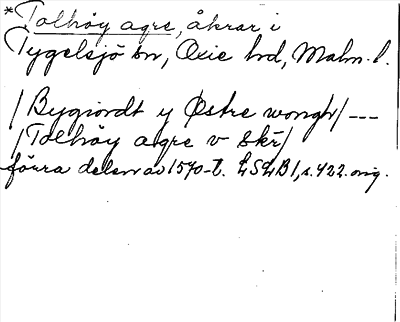 *Tolhöy agre, åkrar i
Tygelsjö sn, Oxie hd, Malm. l.
/Bygiordt y Østre wongh/ ---
/Tolhöy agre v Skr/
förra delen av 1570-t. LSLB1, s. 422. orig.